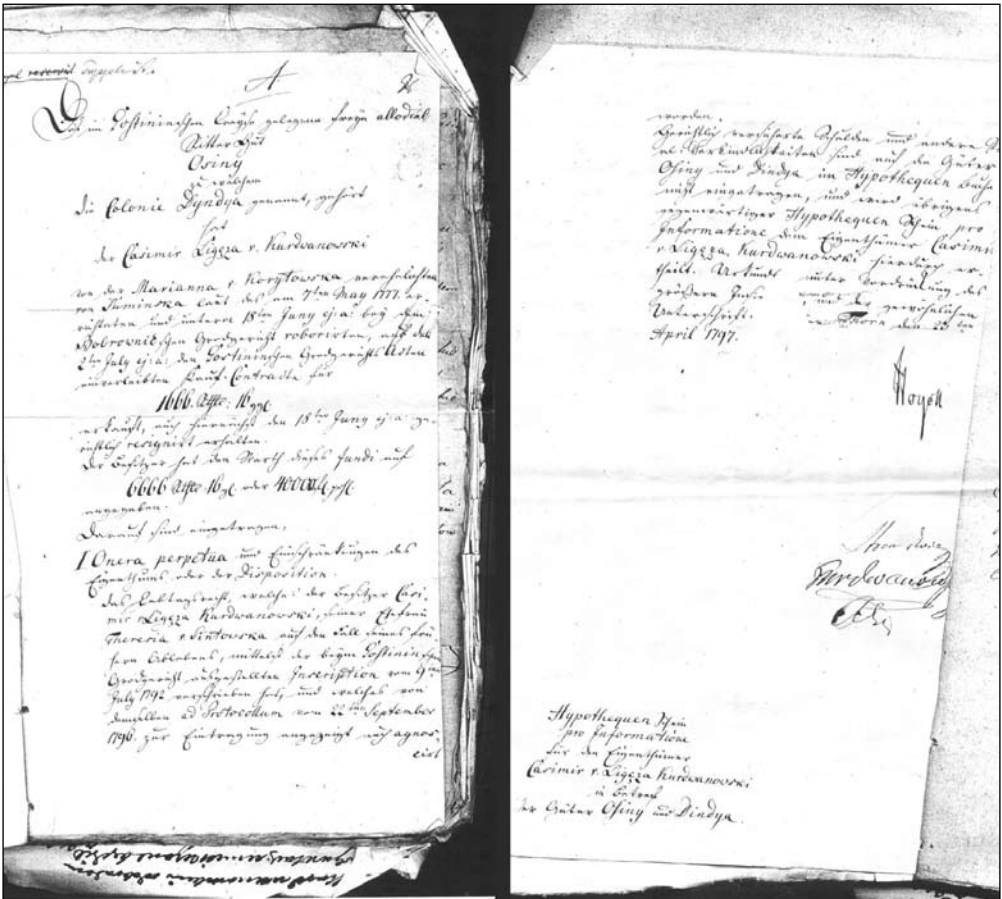 A
Das im Gostininschen Creyse gelegene freye allodial
Ritter Gut
Osiny
zu welchem
die Colonie Dyndya genannt, gehört
hat
der Casimir Ligęza v. Kurdwanowski
von der Marianna v. Korytowska verehelichten
von Suminska laut des am 7ten May 1777. er-
richteten und unterm 18ten Juny ej. a. bey dem
Bobrownickschen Grodgericht roborirten, auch des
2ten July ej. a. den Gostininschen Grodgerichts Acten
einverleibten Kauf-Contracts für
1666. Rthlr. 16 ggl.
erkauft, auch hiernächst den 18ten Juny ej. a. ge-
richtlich resignirt erhalten.
Der Besitzer hat den Werth dieses fundi auf
6666 Rthlr. 16 gl. oder 40000 fl. pohl.
angegeben.
Darauf sind eingetragen,
I. Onera perpetua und Einschränkungen des
Eigenthums oder der Disposition.
das Leibtagsrecht, welches der Besitzer Casi-
mir v. Ligęza Kurdwanowski, seiner Ehefrau
Theresia v. auf den Fall seines frü-
hern Ablebens, mittelst der beym Gostininschen
Grodgericht ausgestellten Inscription vom 9ten
July 1792 verschrieben hat, und welches von
demselben ad Protocollum vom 22ten September
1796. zur Eintragung angezeigt auch agnos-
cirt
worden.
Gerichtlich versicherte Schulden und andere
Verbindlichkeiten sind auf die Güter
Osiny und Dindya im Hypothequen Buche
nicht eingetragen, und wird übrigens
gegenwärtiger Hypothequen Schein pro
Informatione dem Eigenthümer Casimir
v. Ligęza Kurdwanowski hierdurch er-
theilt. Urkundl. unter Vordrückung des
größern und der gewöhnlichen
Unterschrift. Thorn den 22ten
April 1797.
Hoyoll
Kurdwanowski
Hypothequen Schein
pro Informatione
für den Eigenthümer
Casimir v. Ligęza Kurdwanowski
in Betref
der Güter Osiny und Dindya.